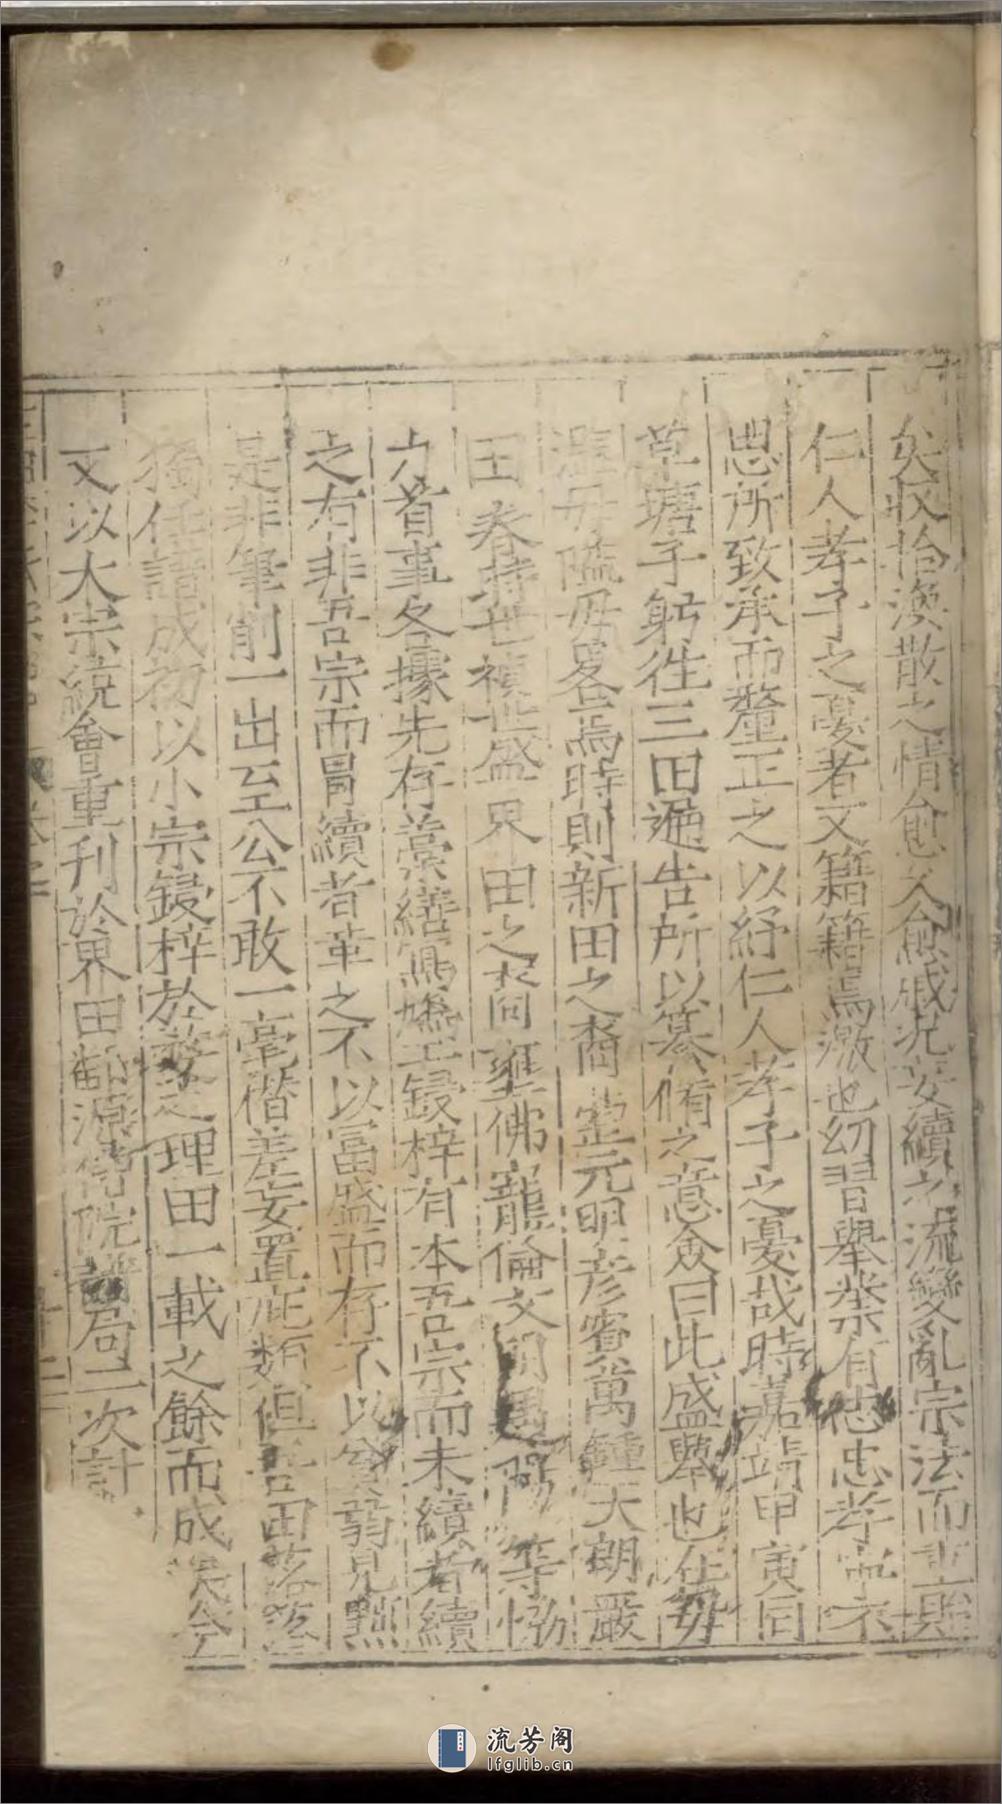 矣收拾渙散之情愈久愈戚况妄續者流變亂宗法而
仁人孝子之憂者又籍籍焉激也幼習舉業有志忠孝寧不
思所致承而釐正之以紓仁人孝子之憂哉時嘉靖甲寅同
草塘子躬徃三田遍告所以纂脩之意僉曰此盛舉也
毋隘毋畧焉時則新田之裔元明彦睿萬鍾天朗嚴
田春時世禎世盛界田之裔佛寵倫文等恊
力首事各據先存藁繕寫鳩工鋟梓有本吾宗而未續者續
之有非吾宗而冐續者革之不以富盛而存不以貧弱見黜
是非筆削一出至公不敢一毫僣差妄置疵類但吾田落落
獨任譜成初以小宗鋟梓於婺之理田一載之餘而成
又以大宗統會重刊於界田源院譜局二次計
流芳阁
lfglib.cn